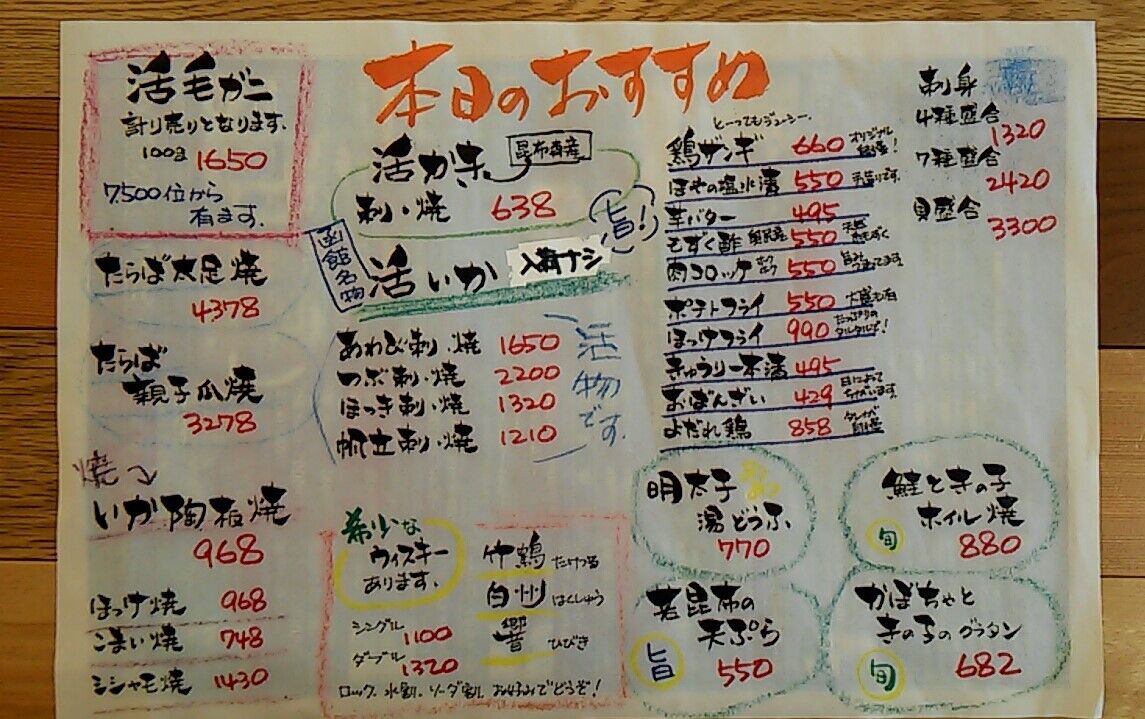 本日のおすすめ
活毛ガニ
計り売りとなります。
100g 1650
7,500位から
有ます。
たらば太足焼
4378
たらば
親子爪焼
3278
焼
いか陶板焼
968
ほっけ焼 968
こまい焼 748
シシャモ焼 1430
活かき 昆布森産
刺・焼 638
旨!
函館名物
活いか 入荷ナシ
あわび刺・焼 1650
つぶ刺・焼 2200
ほっき刺・焼 1320
帆立刺・焼 1210
活物です。
希少な
ウィスキー
あります。
シングル
1100
ダブル
1320
竹鶴 たけつる
白州 はくしゅう
響 ひびき
ロック、水割、ソーダ割、お好みでどうぞ!
とーってもジューシー。
鶏ザンギ 660 オリジナル
ほやの塩水漬 550
芋バター 495
もずく酢 550
肉コロッケ 550
ポテトフライ 550
ほっけフライ 990 たっぷりの タルタルで!
きゅうり一本漬 495
おばんざい 429 日によって ちがいます。
よだれ鶏 858
刺身
4種盛合
1320
7種盛合
2420
貝盛合
3300
明太子
湯どうふ
770
鮭ときの子
ホイル焼
旬 880
若昆布の
天ぷら
旨 550
かぼちゃと
きの子のグラタン
旬 682